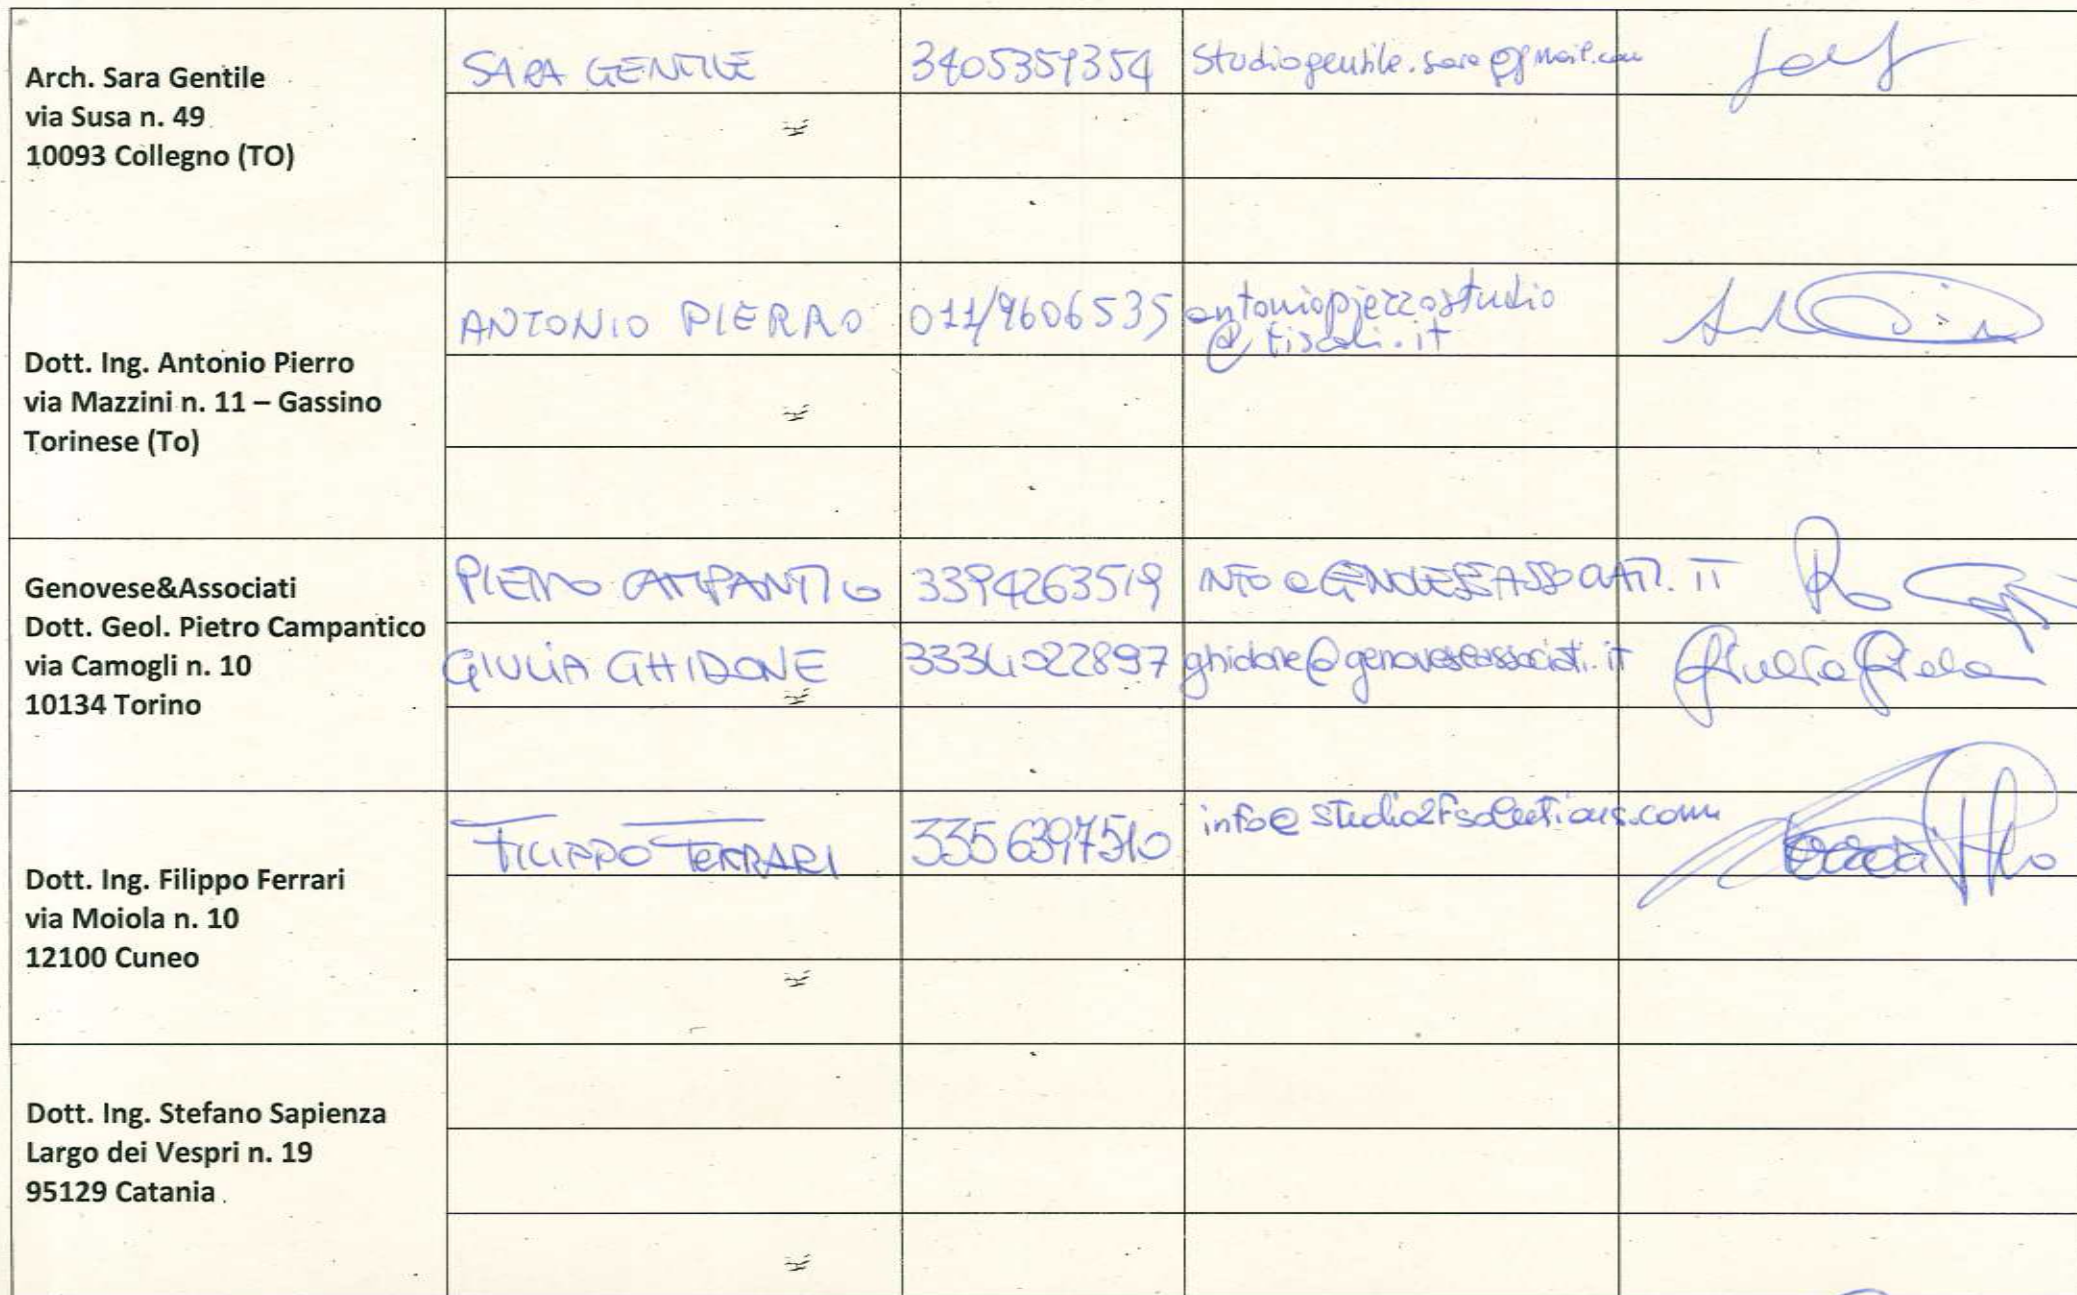 Arch. Sara Gentile
via Susa n. 49
10093 Collegno (TO)
SARA GENTILE 3405359354 studiogentile.sara@gmail.com
Dott. Ing. Antonio Pierro
via Mazzini n. 11 – Gassino
Torinese (To)
ANTONIO PIERRO 011/9606535 antoniopierrostudio
@tiscali.it
Genovese&Associati
Dott. Geol. Pietro Campantico
via Camogli n. 10
10134 Torino
PIETRO CAMPANTICO 3394263519 INFO@GENOVESEASSOCIATI.IT
GIULIA GHIDONE 3334022897 ghidone@genoveseassociati.it
Dott. Ing. Filippo Ferrari
via Moiola n. 10
12100 Cuneo
FILIPPO FERRARI 3356397510 info@studio2fsolutions.com
Dott. Ing. Stefano Sapienza
Largo dei Vespri n. 19
95129 Catania